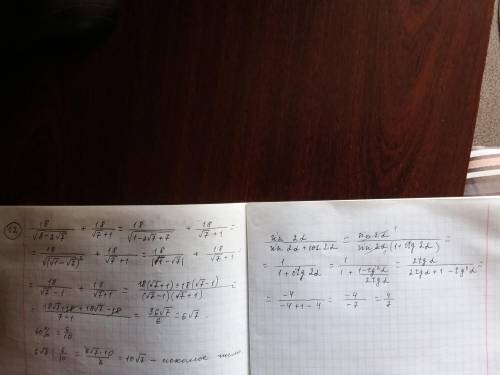 12) 18/√(8-2√7) + 18/(√7+1) = 18/√(1-2√7+7) + 18/(√7+1) =
= 18/√(√1-√7)² + 18/(√7+1) = 18/|√1-√7| + 18/(√7+1) =
= 18/(√7-1) + 18/(√7+1) = (18(√7+1)+18(√7-1))/((√7-1)(√7+1)) =
= (18√7+18+18√7-18)/(7-1) = 36√7/6 = 6√7
60% = 6/10
6√7 : 6/10 = 6√7·10/6 = 10√7 - искомое число
sin 2α/(sin 2α + cos 2α) = sin 2α/(sin 2α (1+ctg 2α)) =
= 1/(1+ctg 2α) = 1/(1+(1-tg²α)/(2tgα)) = 2tgα/(2tgα+1-tg²α) =
= -4/(-4+1-4) = -4/-7 = 4/7